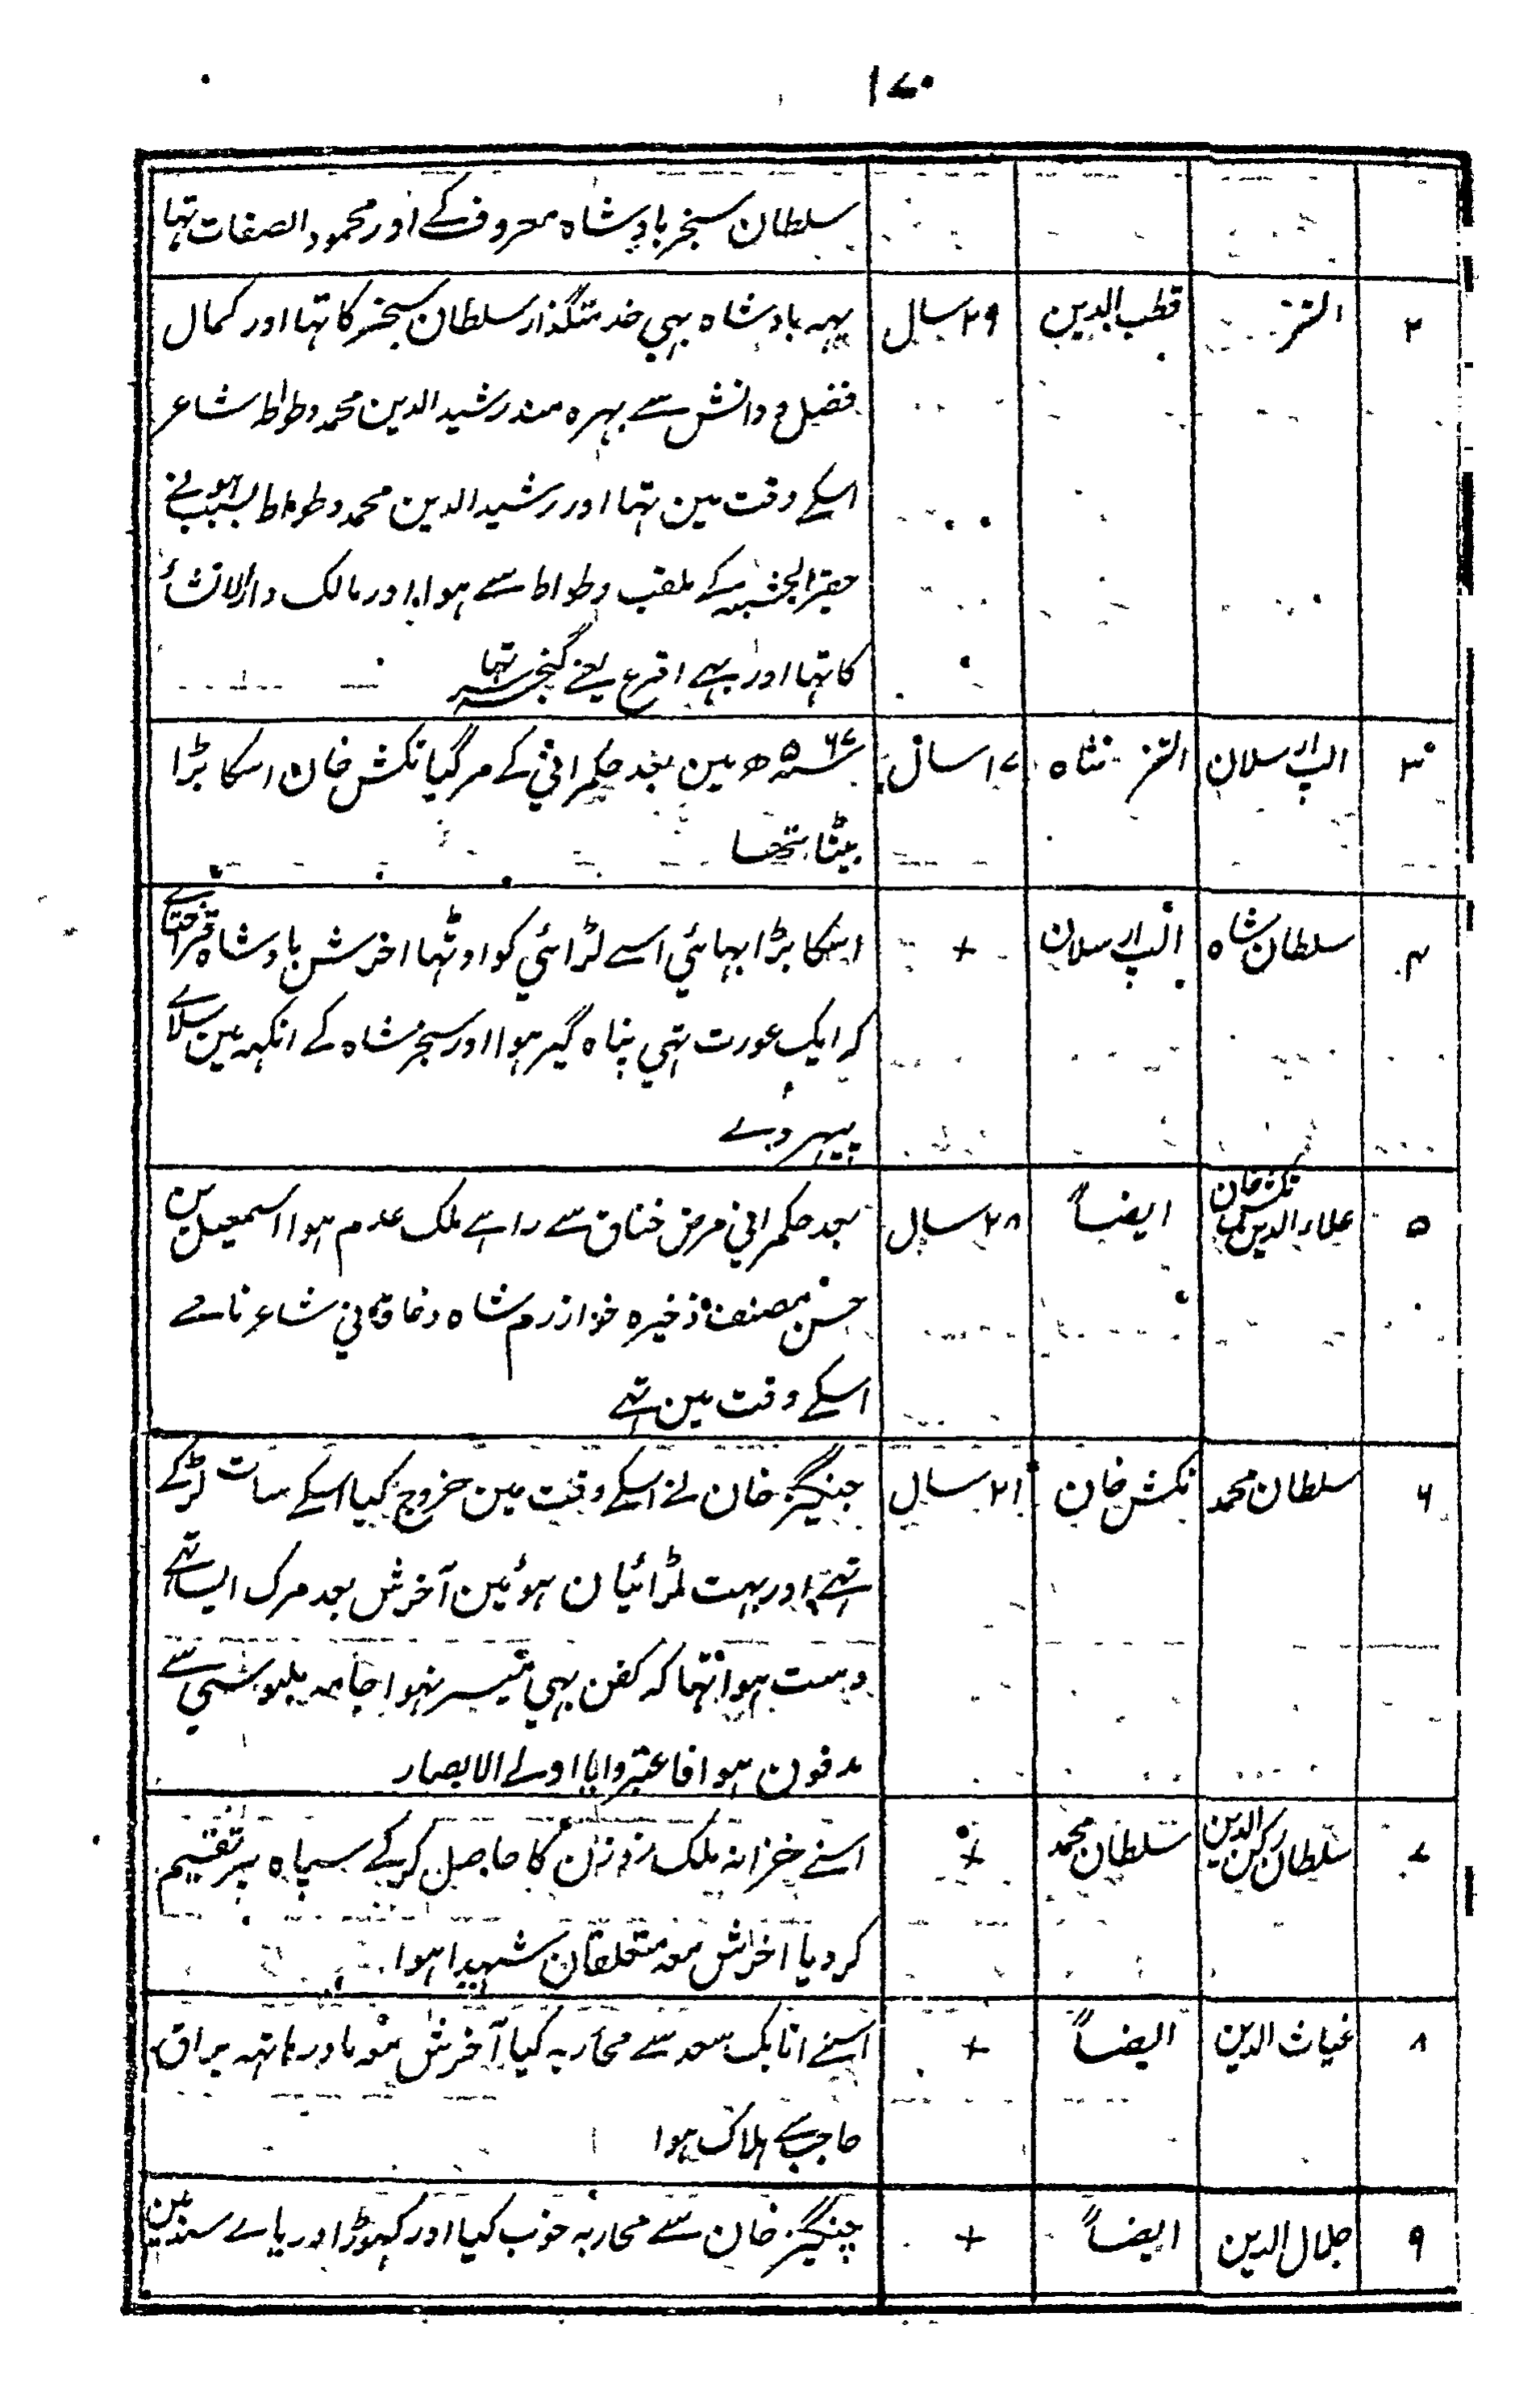 ۱۷۰
سلطان سنجر بادشاہ معروف کے اور محمود الصفات تہا
۲ اتسز قطب الدین ۲۹ سال یہہ بادشاہ بہی خدمتگذار سلطان سنجر کا تہا اور کمال
فضل و دانش سے بہرہ مند رشید الدین محمد وطواط شاعر
اسکے وقت مین تہا اور رشید الدین محمد وطواط بسبب ہونے
حقیر الجثہ کے ملقب وطواط سے ہوا اور مالک دار الانشأ
کا تہا اور بہے اقرع یعنے گنجہ سر تہا
۳ الپ ارسلان اتسز شاہ ۱۷ سال سنہ ۵۶۷ ھ مین بعد حکمرانی کے مر گیا تکش خان اسکا بڑا
بیٹا تھا
۴ سلطان شاہ الپ ارسلان + اسکا بڑا بہائی اسے لڑائی کو اوٹہا اخرش بادشاہ قراختائے
کہ ایک عورت تہی پناہ گیر ہوا اور سنجر شاہ کے انکہہ مین سلائے
پہیر دے
۵ علاء الدین تکش خان ایضاً ۲۸ سال بعد حکمرانی مرض خناق سے راہے ملک عدم ہوا اسمعیل بن
حسن مصنف ذخیرہ خوازرم شاہ و خاقانی شاعر نامے
اسکے وقت مین تہے
۶ سلطان محمد تکش خان ۲۱ سال چنگیز خان نے اسکے وقت مین خروج کیا اسکے سات لڑکے
تہے اور بہت لڑائیان ہوئین آخرش بعد مرگ ایسا تہے
دست ہوا تہا کہ کفن بہی میسر نہوا جامہ پلبوشی سے
مدفون ہوا فاعتبروا یا اولے الابصار
۷ سلطان رکن الدین سلطان محمد + اسنے خزانہ ملک زوزن کا حاصل کرکے سپاہ پر تقسیم
کر دیا اخرش معہ متعلقان شہید ہوا
۸ غیاث الدین ایضاً + اسنے اتابک سعد سے محاربہ کیا آخرش معہ مادر ہاتہہ براق
حاجب سے ہلاک ہوا
۹ جلال الدین ایضاً + چنگیز خان سے محاربہ خوب کیا اور کہوڑا دریاے سندہ مین